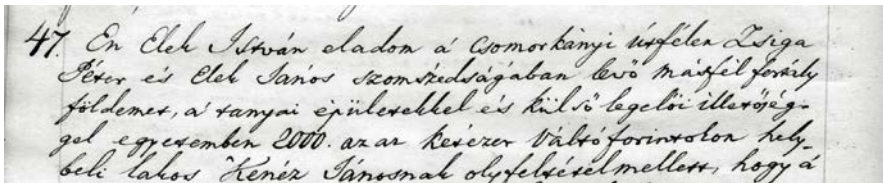 47. Én Elek István eladom a' Csomorkányi útfélen Zsiga
Péter és Elek János szomszédságában levő másfél fertály
földemet, a' tanyai épületekkel és külső legelői illetőség-
gel egyetemben 2000. azaz kétezer Váltó forintokon hely-
beli lakos Kenéz Jánosnak oly feltétel mellett, hogy a'